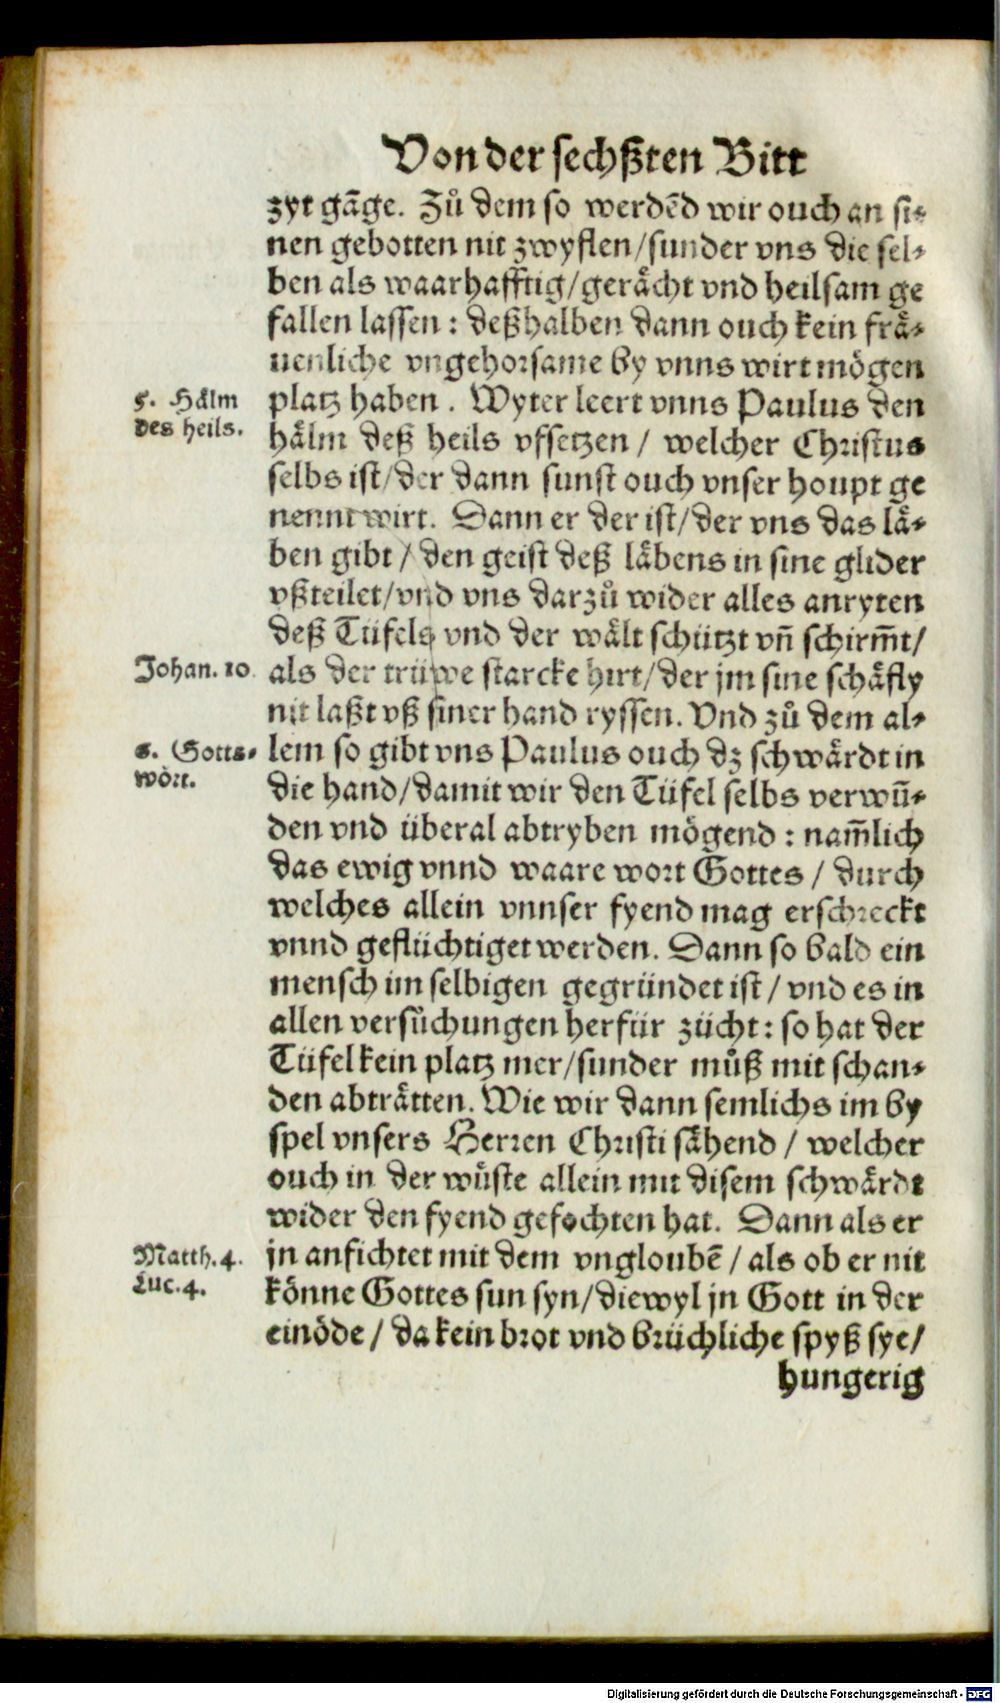 Von der sechßten Bitt
zyt gãge. Zů dem so werdẽd wir ouch an si⸗
nen gebotten nit zwyflen/sunder vns die sel⸗
ben als waarhafftig/gerächt vnd heilsam ge
fallen lassen : deßhalben dann ouch kein frä⸗
uenliche vngehorsame by vnns wirt mögen
5. Hälm
platz haben . Wyter leert vnns Paulus den
des heils.
hälm deß heils vfsetzen / welcher Christus
selbs ist/der dann sunst ouch vnser houpt ge
nennt wirt. Dann er der ist/der vns das lä⸗
ben gibt / den geist deß läbens in sine glider
vßteilet/vnd vns darzů wider alles anryten
deß Tüfels vnd der wält schützt vñ schirm̃t/
Johan. 10.
als der trüwe starcke hirt/der jm sine schäfly
nit laßt vß siner hand ryssen. Vnd zů dem al⸗
6. Gotts⸗
lem so gibt vns Paulus ouch dz schwärdt in
wort.
die hand/damit wir den Tüfel selbs verwũ⸗
den vnd überal abtryben mögend : nam̃lich
das ewig vnnd waare wort Gottes / durch
welches allein vnnser fyend mag erschreckt
vnnd geflüchtiget werden. Dann so bald ein
mensch im selbigen gegründet ist / vnd es in
allen versůchungen herfür zücht : so hat der
Tüfel kein platz mer/sunder můß mit schan⸗
den abträtten. Wie wir dann semlichs im by
spel vnsers Herren Christi sähend / welcher
ouch in der wůste allein mit disem schwärdt
wider den fyend gefochten hat. Dann als er
Matth.4.
jn anfichtet mit dem vngloubẽ / als ob er nit
Luc.4.
könne Gottes sun syn/diewyl jn Gott in der
einöde / da kein brot vnd brüchliche spyß sye/
hungerig
Digitalisierung gefördert durch die Deutsche Forschungsgemeinschaft - DFG